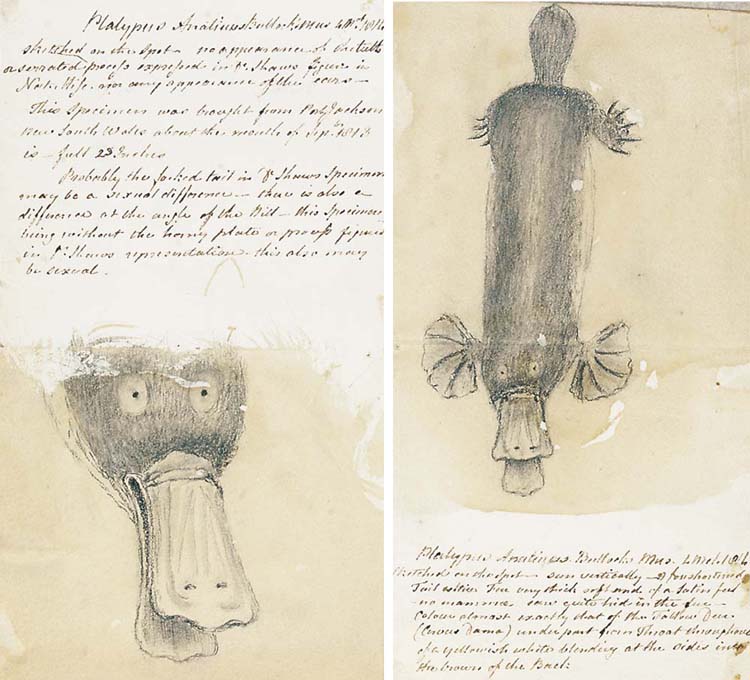 Platypus Anatinus Bullocks Mus 4 Mch 1814
sketched on the spot - no appearance of the teeth
or serrated process expressed in Dr. Shaws figure in
Nat. Misc. nor any appearance of the ears -
This Specimen was brought from Port Jackson
New South Wales about the month of Sepr. 1813
is - full 23 Inches
Probably the forked tail in Dr Shaws Specimen
may be a sexual difference - there is also a
difference at the angle of the Bill - this Specimen
being without the horny plate or process figured
in Dr. Shaws representation - this also may
be sexual.
Platypus Anatinus Bullocks Mus. 4 Mch 1814
Sketched on the spot - seen vertically - foreshortened
Tail entire Fur very thick soft and of a Satin feel
- no mammæ ears quite hid in the fur -
Colour almost exactly that of the Fallow Deer
(Cervus Dama) under part from Throat throughout
of a yellowish white blending at the sides into
the brown of the Back